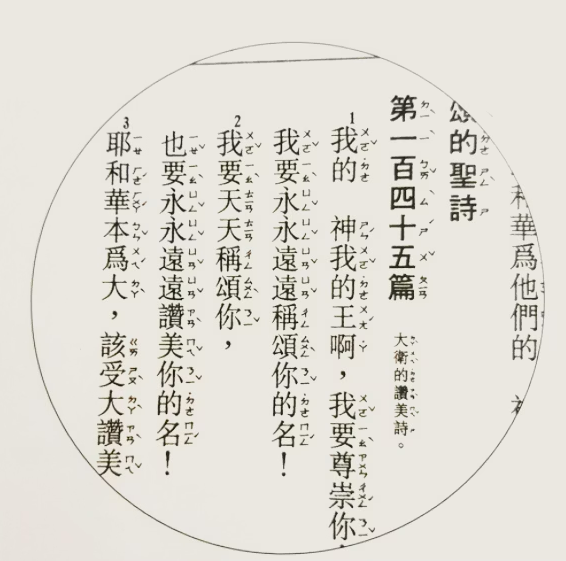 和華為他們的
頌的聖詩
第一百四十五篇 大衛的讚美詩。
1 我的 神我的王啊，我要尊崇你
我要永永遠遠稱頌你的名！
2 我要天天稱頌你，
也要永永遠遠讚美你的名！
3 耶和華本為大，該受大讚美